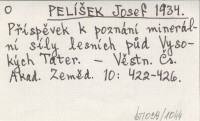 O PELÍŠEK Josef 1934.
Příspěvek k poznání minerál-
ní síly lesních půd Vyso-
kých Tater. – Věstn. Čs.
Akad. Zeměd. 10: 422-426.